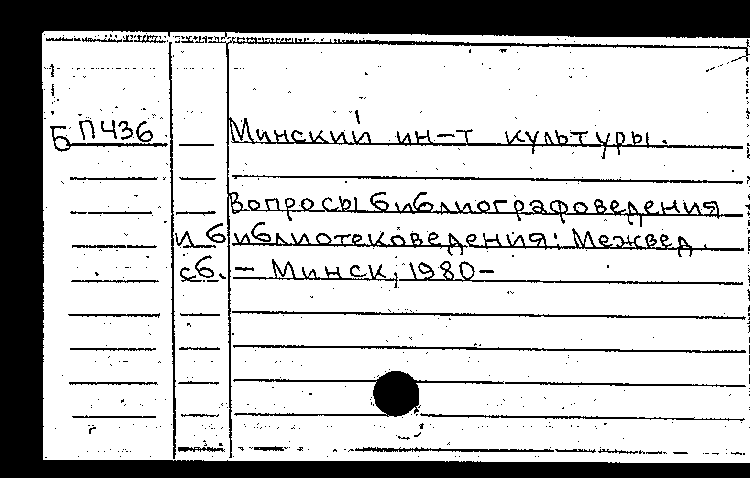 Б П436 Минский ин-т культуры.
Вопросы библиографоведения
и библиотековедения: Межвед.
сб. - Минск, 1980-